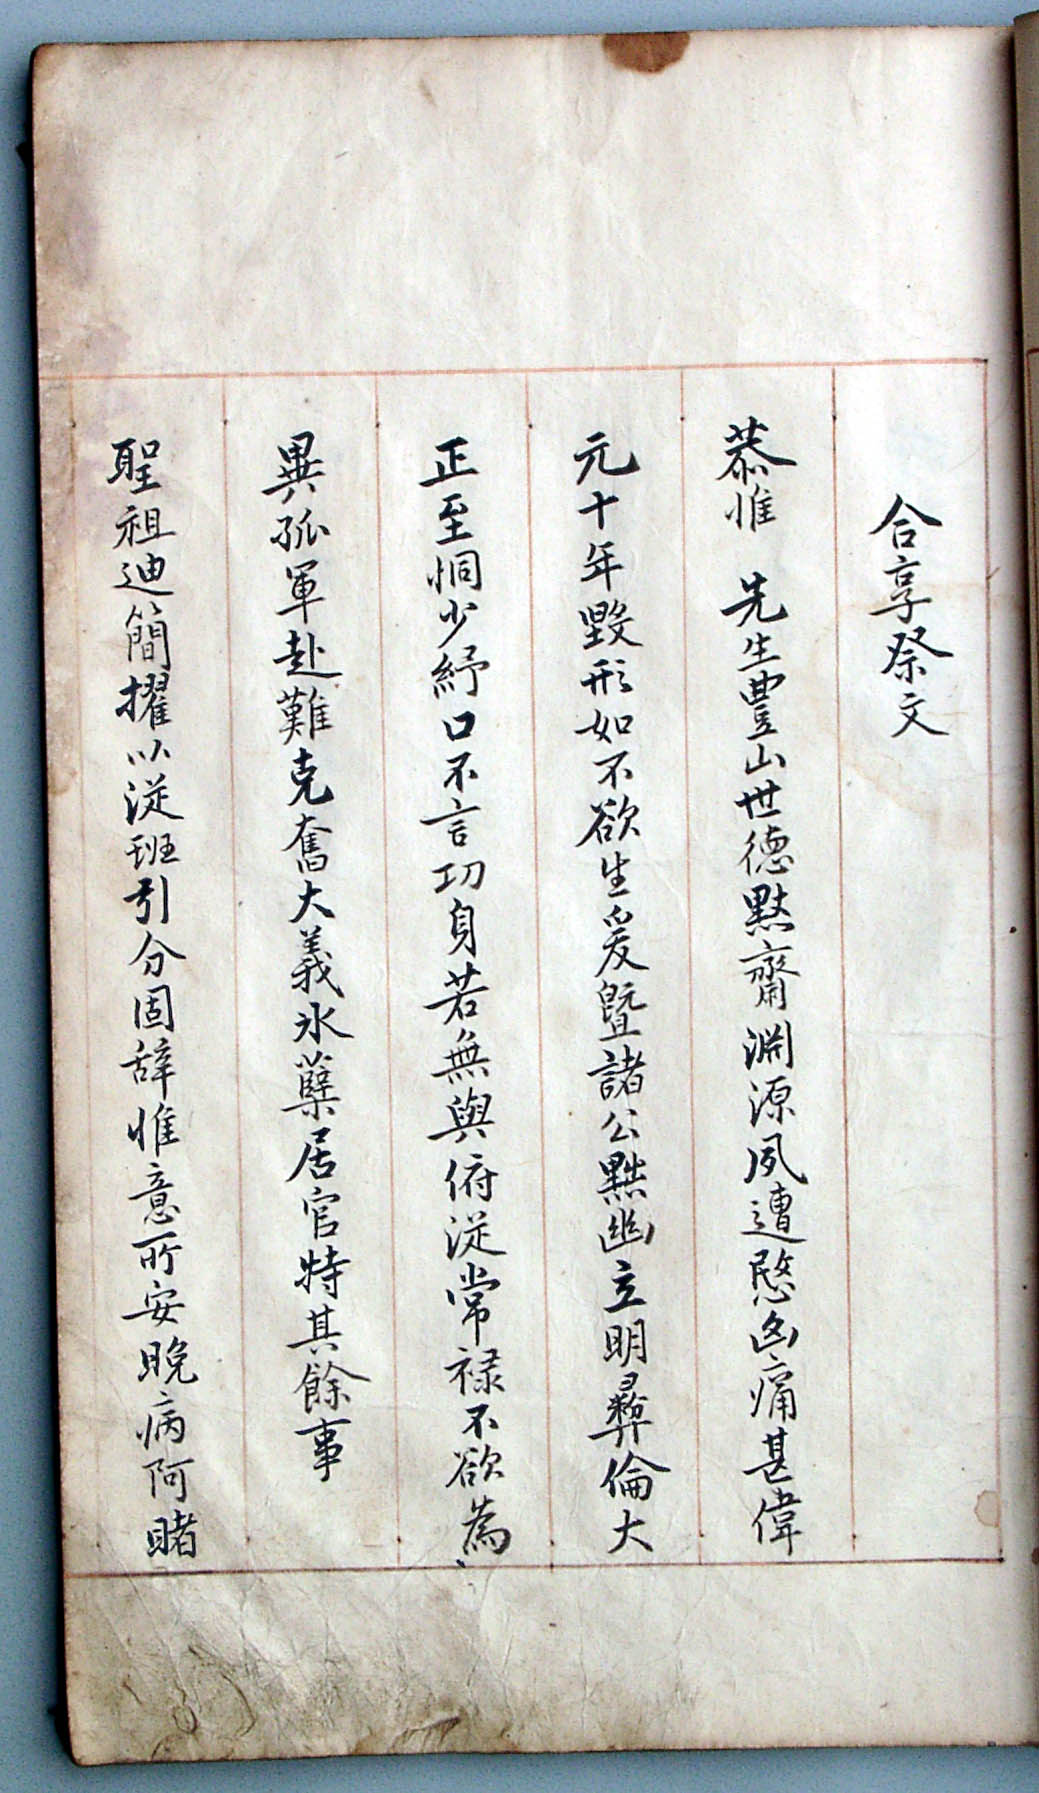 合享祭文
恭惟 先生豊山世德黙齋淵源夙遭愍凶痛甚偉
元十年毀形如不欲生爰曁諸公黜幽立明彛倫大
正至恫少紓口不言功身若無與俯從常祿不欲為
異孤軍赴難克奮大義氷蘖居官特其餘事
聖祖迪簡擢以從班引分固辭惟意所安晩病阿睹